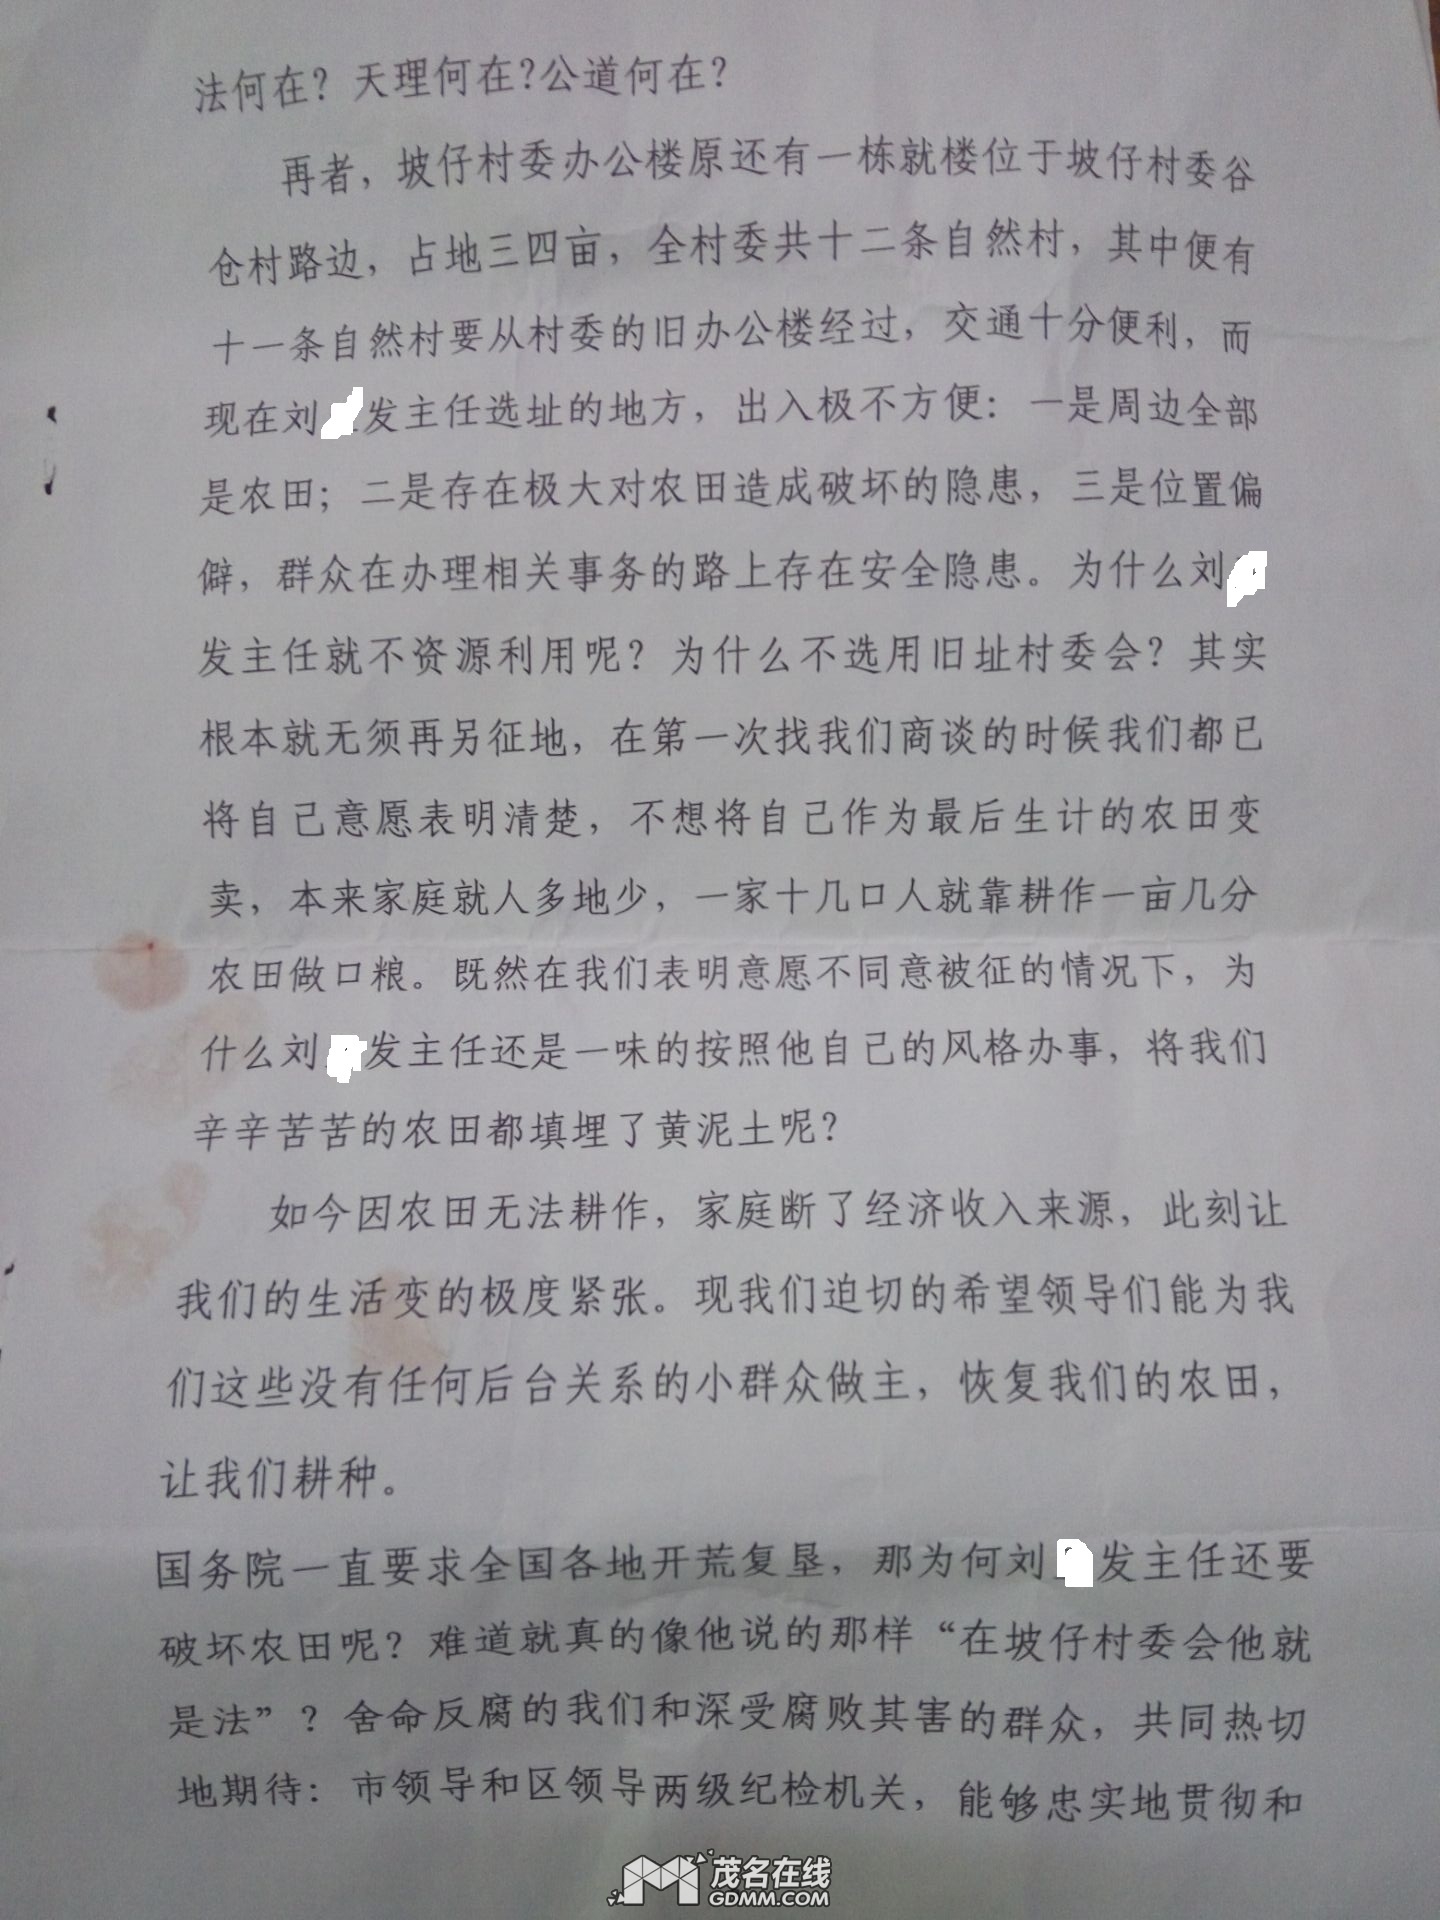 法何在？天理何在?公道何在？
再者，坡仔村委办公楼原还有一栋就楼位于坡仔村委谷
仓村路边，占地三四亩，全村委共十二条自然村，其中便有
十一条自然村要从村委的旧办公楼经过，交通十分便利，而
现在刘发主任选址的地方，出入极不方便：一是周边全部
是农田；二是存在极大对农田造成破坏的隐患，三是位置偏
僻，群众在办理相关事务的路上存在安全隐患。为什么刘
发主任就不资源利用呢？为什么不选用旧址村委会？其实
根本就无须再另征地，在第一次找我们商谈的时候我们都已
将自己意愿表明清楚，不想将自己作为最后生计的农田变
卖，本来家庭就人多地少，一家十几口人就靠耕作一亩几分
农田做口粮。既然在我们表明意愿不同意被征的情况下，为
什么刘发主任还是一味的按照他自己的风格办事，将我们
辛辛苦苦的农田都填埋了黄泥土呢？
如今因农田无法耕作，家庭断了经济收入来源，此刻让
我们的生活变的极度紧张。现我们迫切的希望领导们能为我
们这些没有任何后台关系的小群众做主，恢复我们的农田，
让我们耕种。
国务院一直要求全国各地开荒复垦，那为何刘发主任还要
破坏农田呢？难道就真的像他说的那样“在坡仔村委会他就
是法”？舍命反腐的我们和深受腐败其害的群众，共同热切
地期待：市领导和区领导两级纪检机关，能够忠实地贯彻和
茂名在线
GDMM.COM